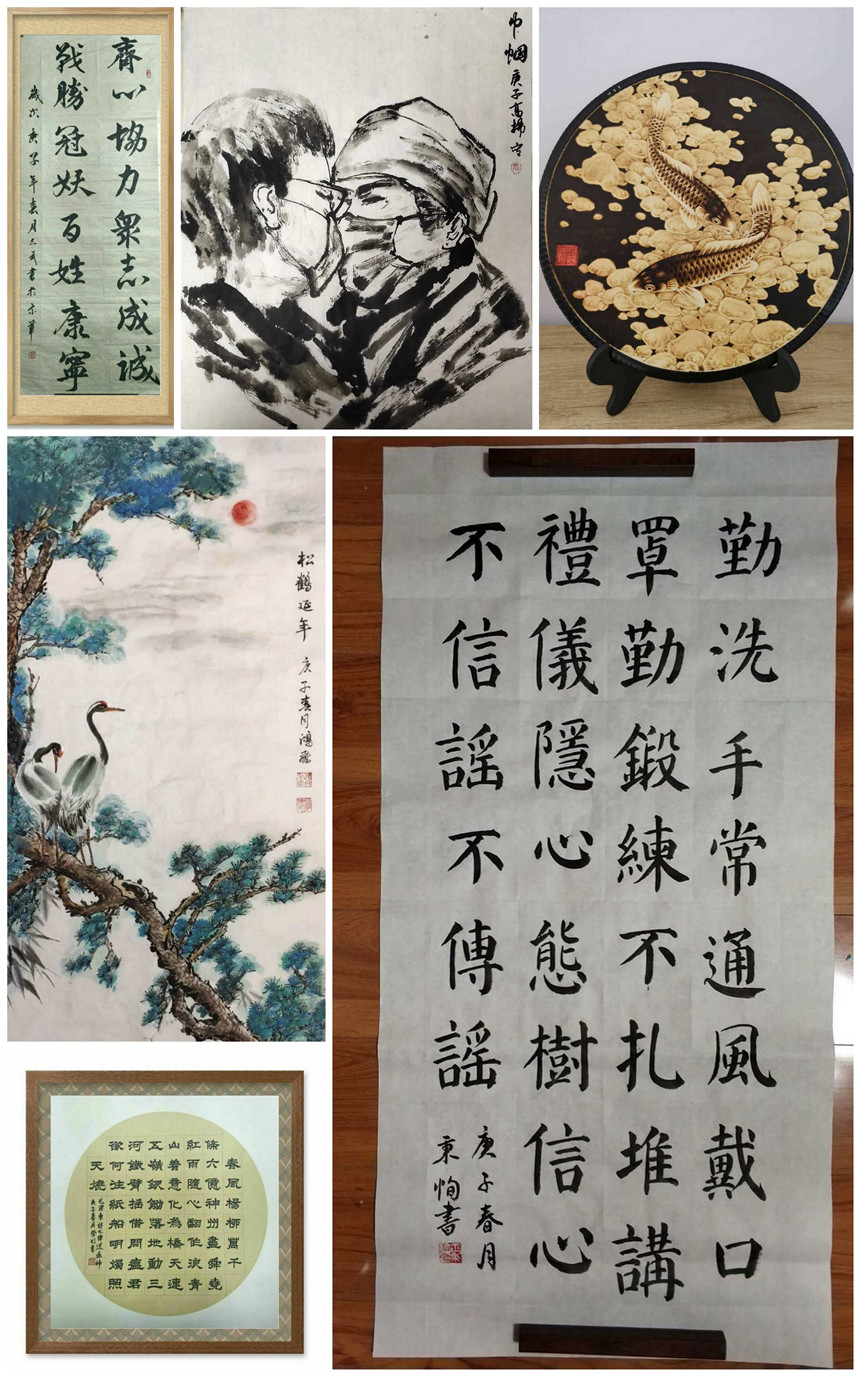 齊心協力衆志成誠
戰勝冠妖百姓康寧
歲次庚子年春月三書於京華
巾帼
庚子高揚
松鶴延年
庚子春月鴻飛
勤洗手常通風戴口
罩勤鍛練不扎堆講
禮儀隱心態樹信心
不信謠不傳謠
庚子春月
秉恂書
春風楊柳萬千
條六億神州盡舜堯
紅雨隨心翻作浪青
山着意化為橋天連
五嶺銀鋤落地動三
河鐵臂搖借問瘟君
欲何往紙船明燭照
天燒
毛澤東詩七律送瘟神
庚子春月書